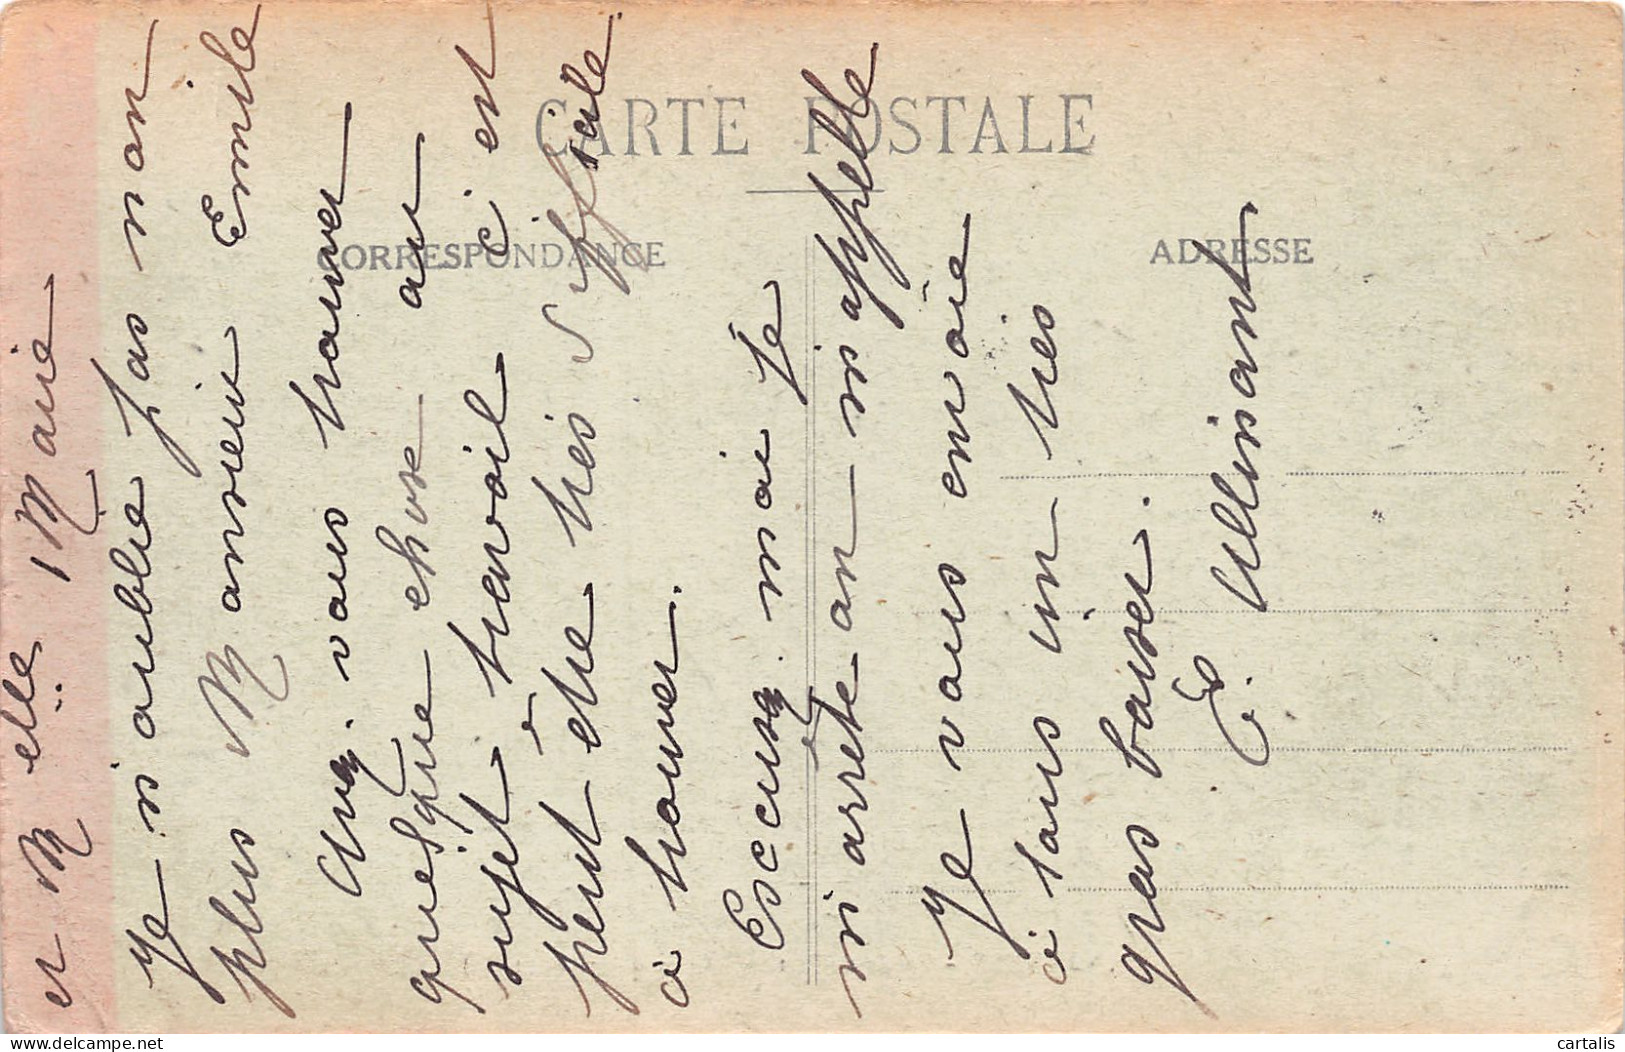 CARTE POSTALE
CORRESPONDANCE
ADRESSE
et M elle Marie
Je n'oublie pas non
plus Monsieur Emile
Avez vous trouver
quelque chose au
sujet travail c'est
peut être très difficile
à trouver.
Escusez moi je
m'arrete on m'appelle
Je vous envoie
à tous un très
gros baiser.
E.
cartalis